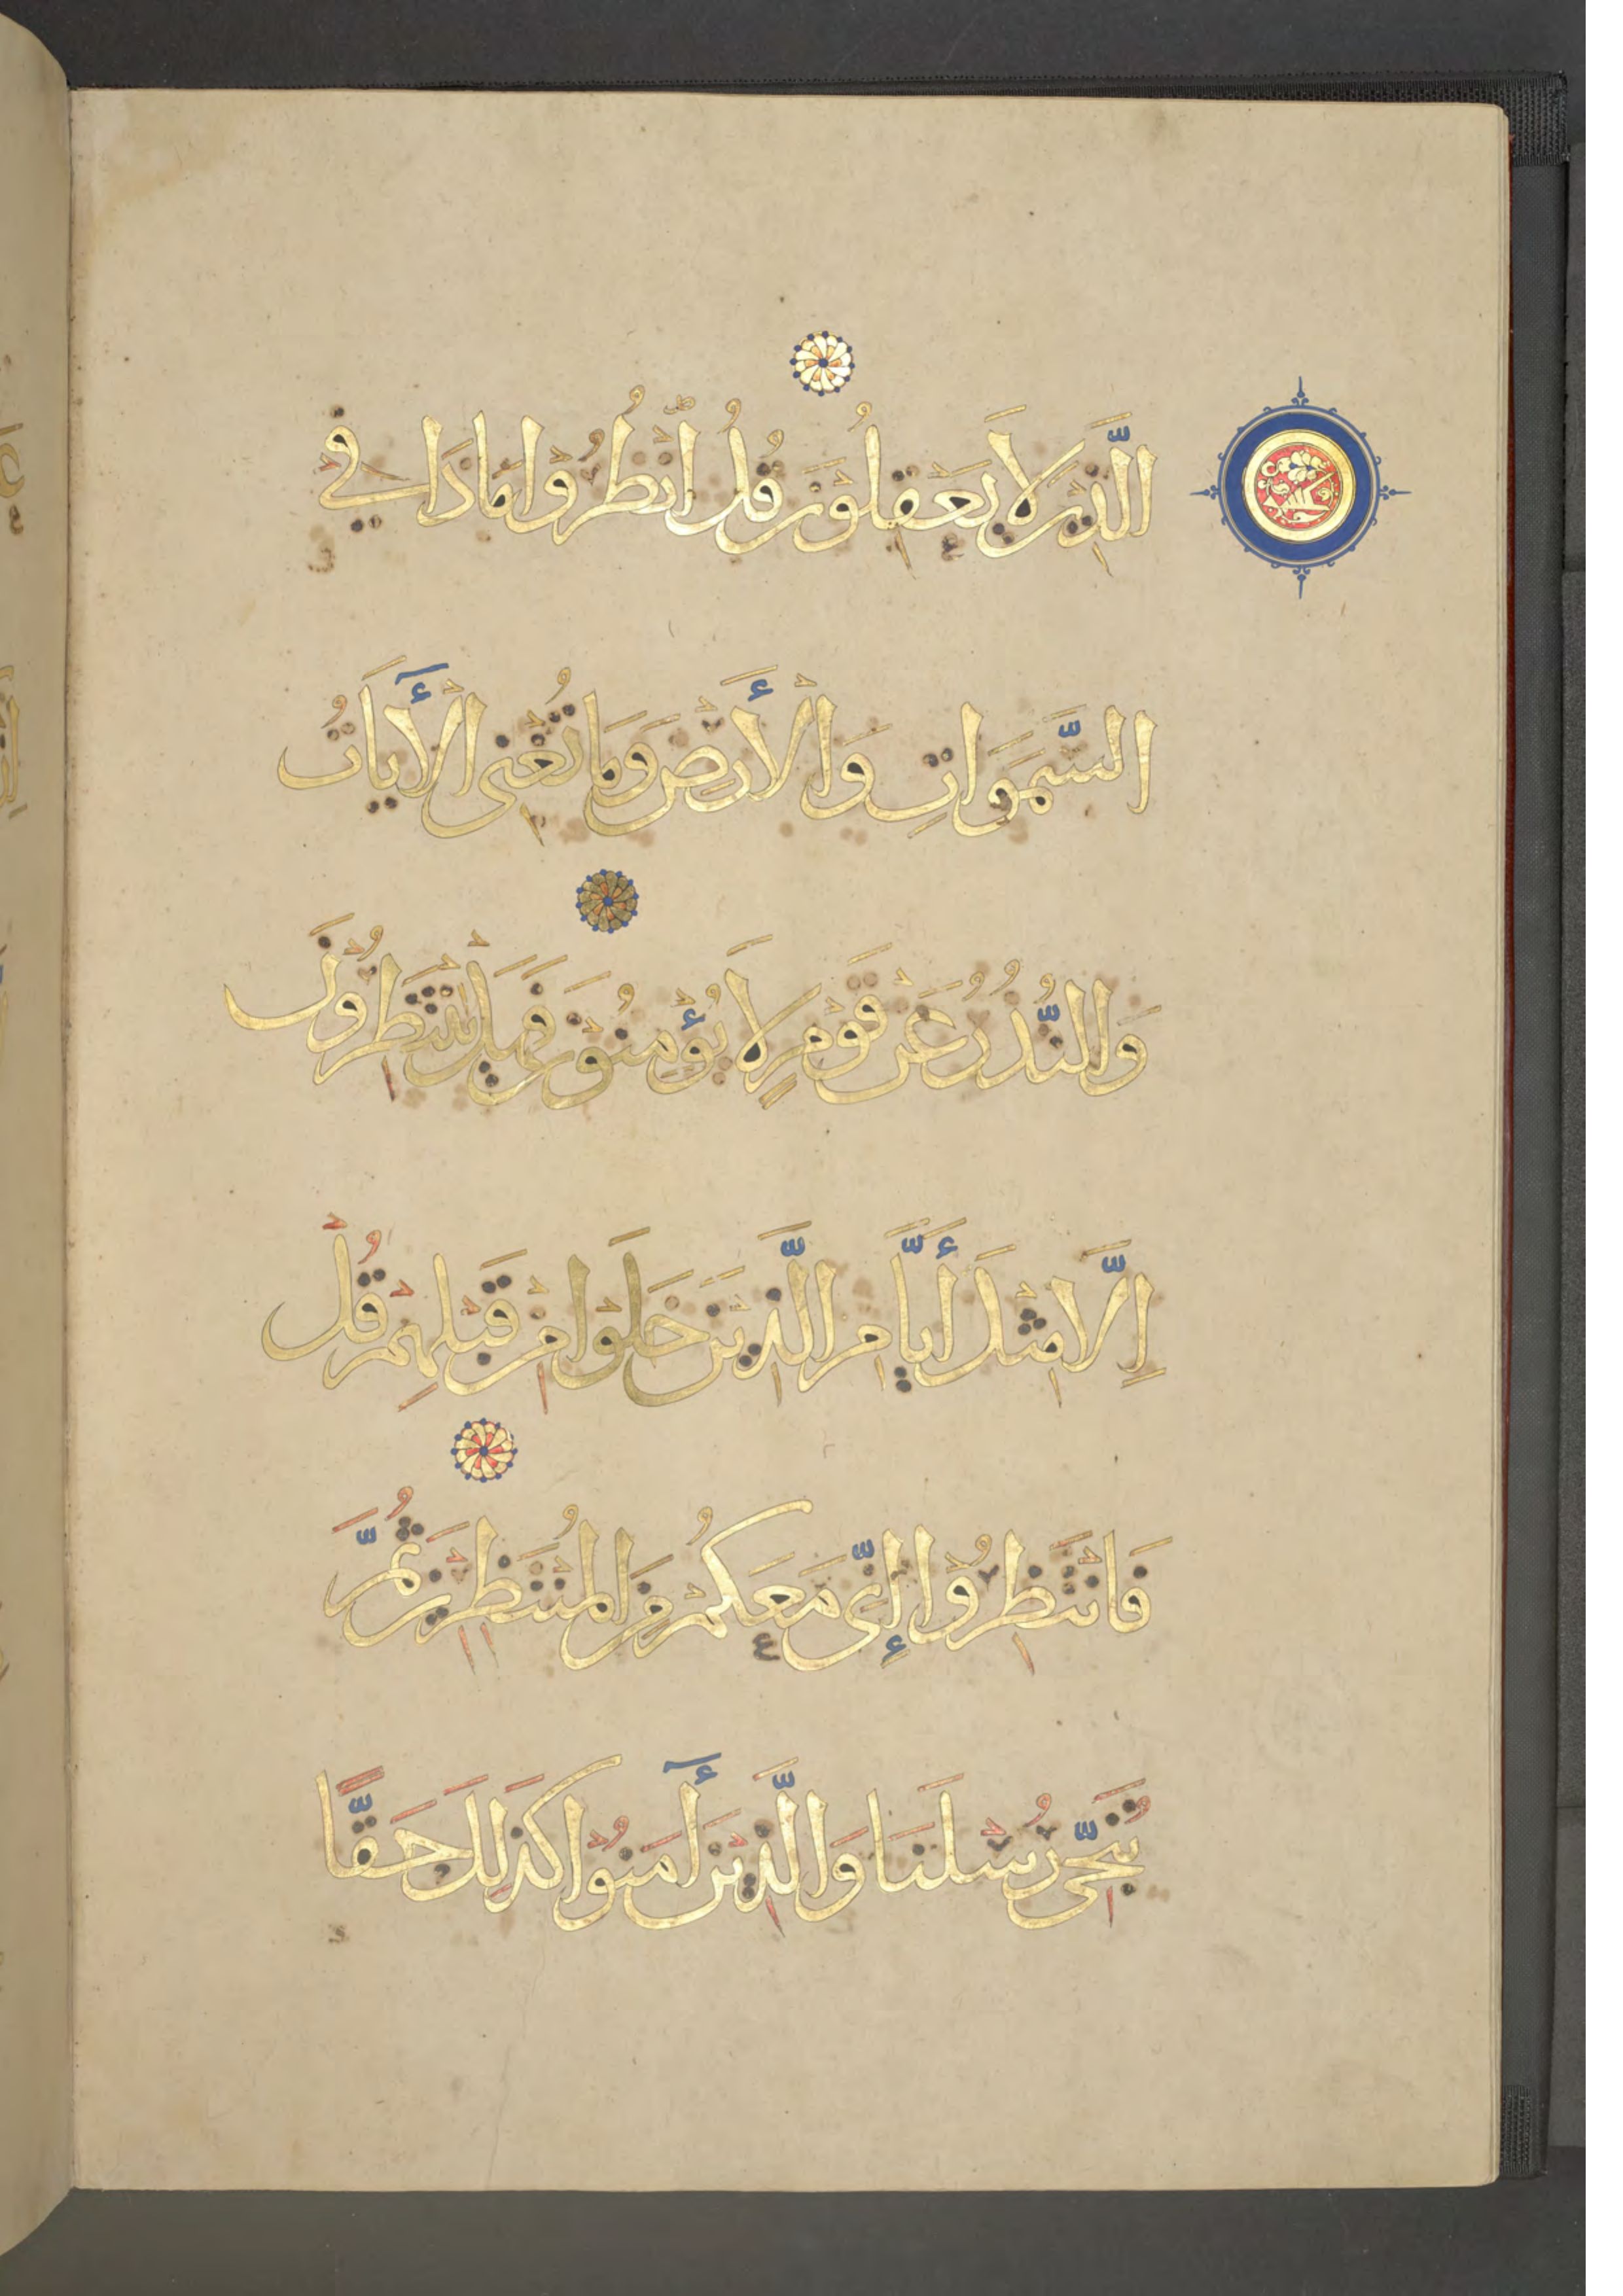 الَّذِيْنَ لَا يَعْقِلُوْنَ قُلُ انْظُرُوْا مَا ذَا فِي
السَّمَوَاتِ وَالْأَرْضِ وَمَا تُغْنِى الْأٓيَاتُ
وَالنُّذُرُ عَنْ قَوْمٍ لَا يُؤْمِنُوْنَ فَهَلْ يَنْتَظِرُوْنَ
إِلَّا مِثْلَ أَيَّامِ الَّذِيْنَ خَلَوْا مِنْ قَبْلِهِمْ قُلْ
فَانْتَظِرُوْا إِنِّى مَعَكُمْ مِنَ الْمُنْتَظِرِيْنَ ثُمَّ
نُنَجِّى رُسُلَنَا وَالَّذِيْنَ أٓمَنُوْا كَذَلِكَ حَقًّا